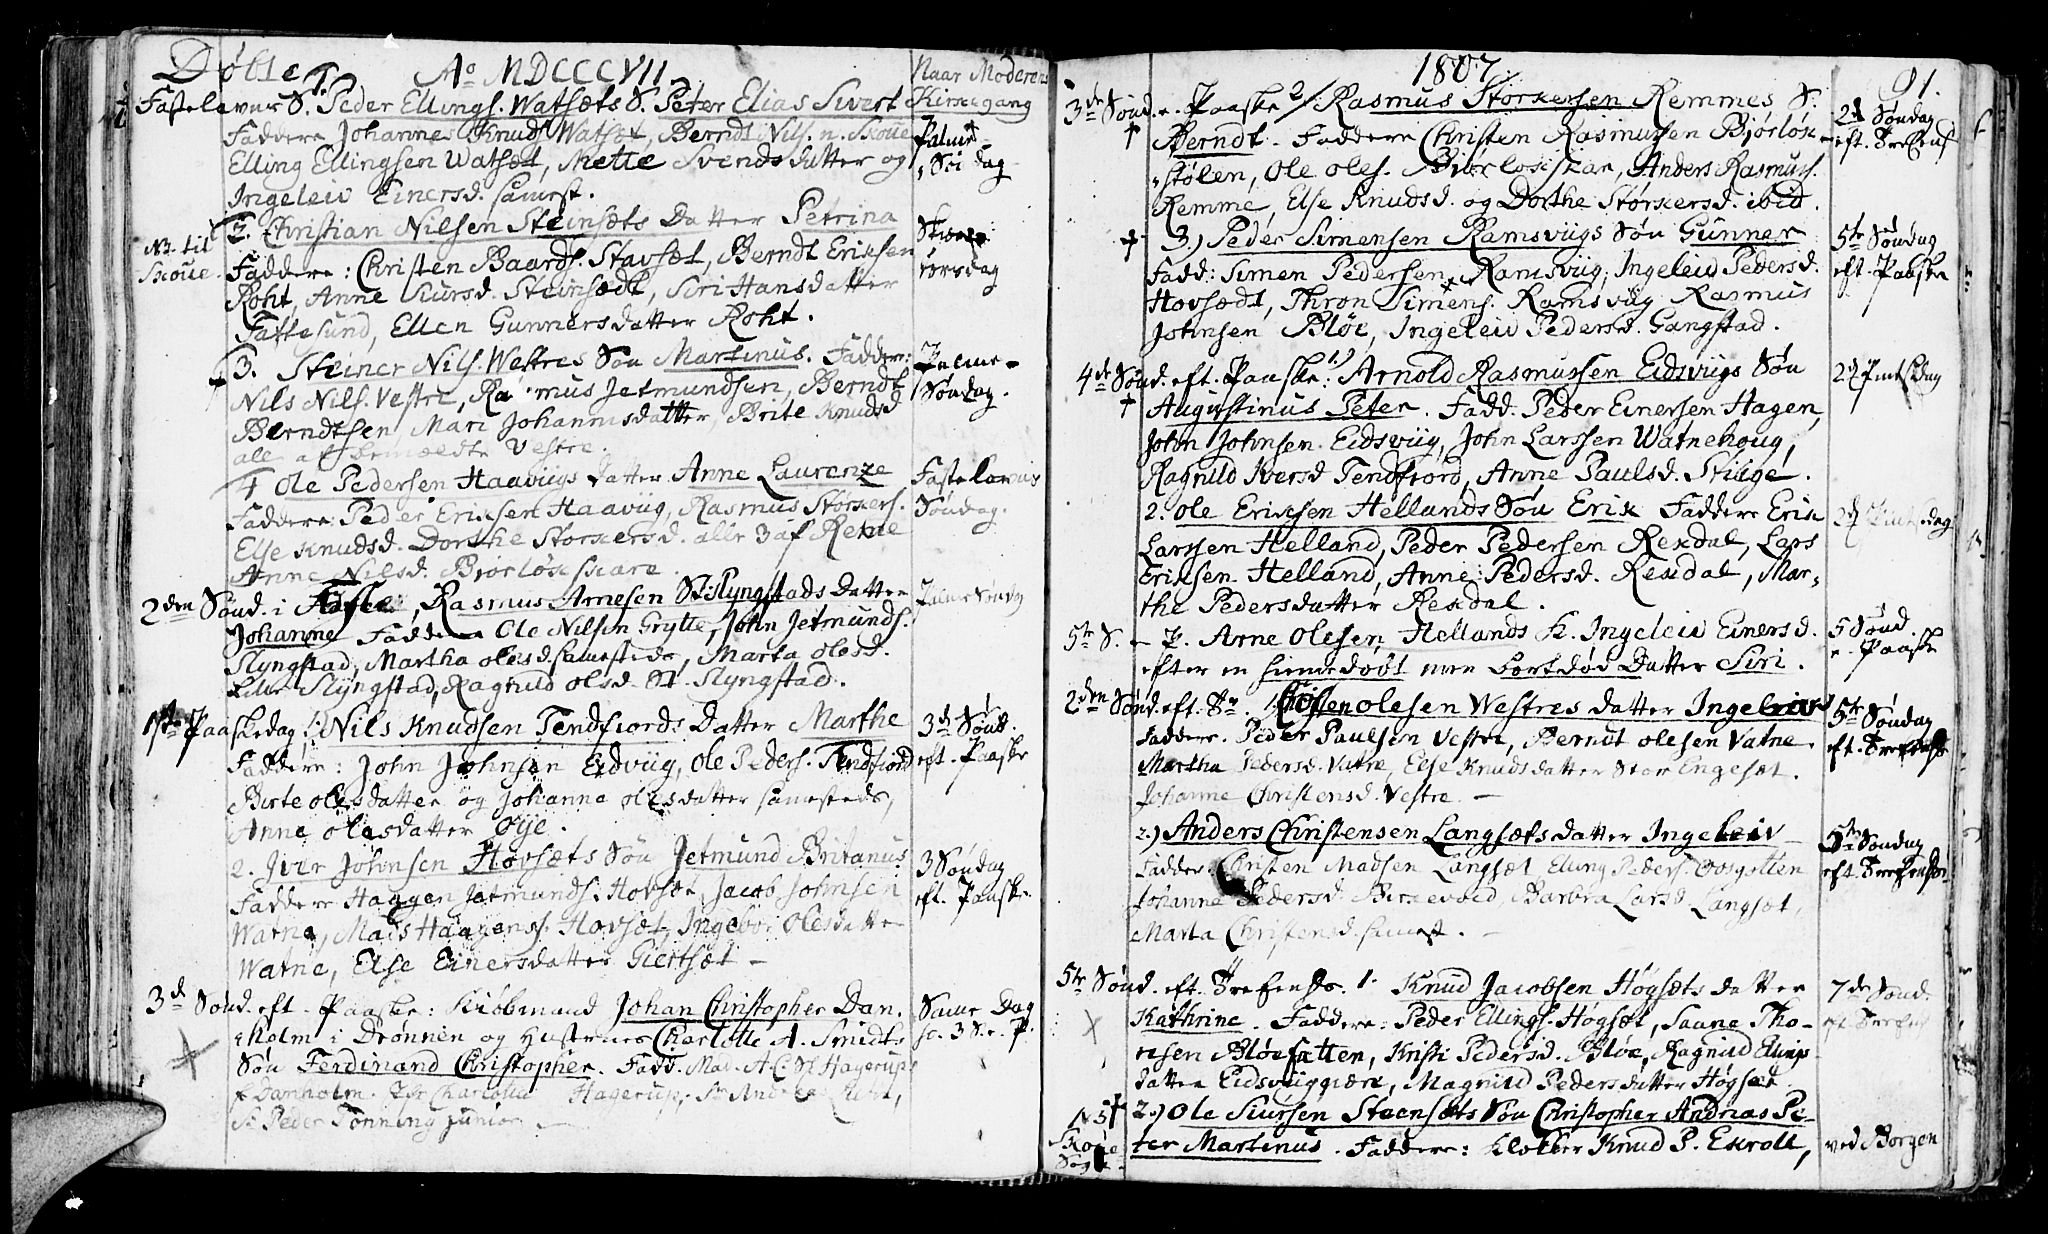 Døbte
Ao MDCCCVII
Naar Moderens
Fastelavns S. Peder Ellings. Watsæts S. Peter Elias Sivert
Kirkegang
Faddere Johannes Knuds. Watsæt, Berndt Nils. n. Skoue
Elling Ellingsen Watsæt, Mette Svendsdatter og
Ingeleiv Einersd. samest.
Palme-
Søndag
2. Christian Nilsen Steinsæts Datter Petrina
N3. til
Skoue.
Faddere: Christen Baards. Stavsæt, Berndt Eriksen
Roht, Anne Siursd. Steinsædt, Siri Hansdatter
Fattesund, Ellen Gunnersdatter Roht.
Skiær
torsdag
3. Steiner Nils. Westres Søn Martinus. Faddere:
Nils Nils. Vestre, Rasmus Jetmundsen, Berndt
Berndtsen, Mari Johannisdatter, Brite Knudsd
alle af bemældte Vestre.
Palme-
Søndag.
4 Ole Pedersen Haavügs Datter Anne Laurenze
Faddere: Peder Eriksen Haavüg, Rasmus Størkers.
Else Knudsd. Dorthe Størkersd. alle 3 af Remme
Anne Nilsd. Biorløkskare.
Fastelavns
Søndag.
2den Sønd. i Faste, Rasmus Arnesen St. Slyngstads Datter
Johanne Faddere Ole Nilsen Grytte, John Jetmunds.
Slyngstad, Martha olesd. samesteds, Marta olesd.
Lille Slyngstad, Ragnild olsd. St. Slyngstad.
Palme Søndag
1ste Paaskedag 1. Nils Knudsen Tendfiords Datter Marthe
Faddere: John Johnsen Eidvüg, Ole Peders. Tendfiord
Birte olesdatter og Johanna olesdatter samesteds,
Anne olesdatter Øye.
3de Sønd.
eft. Paaske
2. Iver Johnsen Hovsæts Søn Jetmund Britanus
Faddere Haagen Jetmunds. Hovsæt, Jacob Johnsen
Watne, Mads Haagens. Hovsæt, Ingebor olesdatter
Watne, Else Einersdatter Giertsæt –
3 Søndag
eft. Paaske.
3de Sønd. eft. Paaske: Kiøbmand Johan Christopher Dan-
holm i Drønnen og Hustrues Charlotte A. Smidts
Søn Ferdinand Christopher. Fadd. Mad. A. C. St Hagerups
f. Damholm. Jfr Charlotta Hagerup,
Sr Peder Tønning junior –
Samme Dag
sc. 3 S. e. P.
1807.
91.
3de Sønd. e. Paaske 2/ Rasmus Størkersen Remmes S.
Berndt. Faddere Christen Rasmussen Bjørløk-
stølen, Ole oles. Biorløkskar, Anders Rasmus.
Remme, Else Knudsd. og Dorthe Størkersd. ibid.
2de Søndag
eft. Trefens
3.) Peder Simensen Ramsvügs Søn Gunner
Fadd: Simen Pedersen Ramsvüg, Ingeleiv Pedersd.
Hovsædt, Thron Simens. Ramsvüg Rasmus
Johnsen Bløe, Ingeleiv Pedersd. Gangstad.
5te Søndag
eft. Paaske
4de Sønd. eft. Paaske: 1.) Arnold Rasmussen Eidsvügs Søn
Augustinus Peter. Fadd. Peder Einersen Hagen,
John Johnsen Eidsvüg, John Larssen Watnehoug,
Ragnild Iversd Tendfiord, Anne Paulsd. Stüge.
2d Pintsedag
2. Ole Eriksen Hellands Søn Erik Faddere Erik
Larssen Helland, Peder Pedersen Rekdal, Lars
Eriksen Helland, Anne Pedersd. Rekdal, Mar-
the Pedersdatter Rekdal.
2d Pintsedag
5te S. – P. Arne Olesen Hellands K. Ingeleiv Einersd.
efter en hiemedøbt men bortdød Datter Siri.
5 Sønd.
e. Paaske
2den Sønd. eft. Tr. 1. Christen olesen Westres datter Ingeleiv
Faddere. Peder Paulsen Vestre, Berndt olesen Vatne.
Martha Pedersd. Vatne, Else Knudsdatter Stor Engesæt.
Johanne Christensd. Vestre. –
5te Søndag
eft. Trefens
2.) Anders Christensen Langsæts datter Ingeleiv
Fadder. Christen Madsen Langsæt Elling Peders.
Johanne Pedersd. Birkevold, Barbra Larsd Langsæt,
Marta Christensd. samest. –
5te Søndag
eft. Trefens
5te Sønd. eft. Trefens. 1. Knud Jacobsen Høgsæts datter
Kathrine. Faddere: Peder Ellings. Høgsæt, Saane Tho-
resen Bløesatten, Kristi Pedersd. Bløe, Ragnild Ellings
datter Eidsvüggiære, Magnild Pedersdatter Høgsæt
7de Sønd.
eft. Trefens
2.) Ole Siursen Steensæts Søn Christopher Andreas Pe-
ter Martinus. Faddere: Klokker Knud P. Ekroll,
ved Borgen
N5
Skoue
Sogn